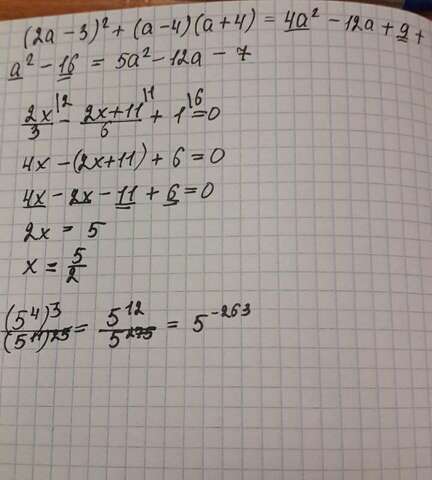 (2a - 3)² + (a - 4)(a + 4) = 4a² - 12a + 9 +
a² - 16 = 5a² - 12a - 7
2x/3 |2 - (2x + 11)/6 |1 + 1 |6 = 0
4x - (2x + 11) + 6 = 0
4x - 2x - 11 + 6 = 0
2x = 5
x = 5/2
(5⁴)³/(5¹¹)²⁵ = 5¹²/5²⁷⁵ = 5⁻²⁶³